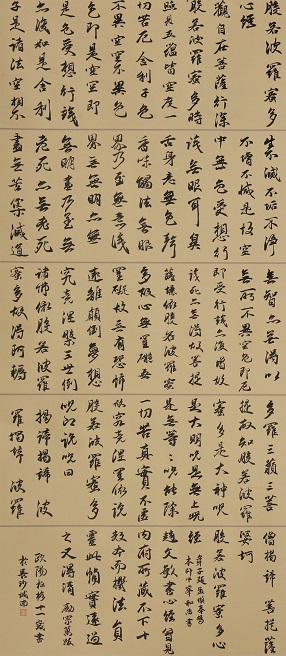 般若波羅蜜多
心經
觀自在菩薩行深
般若波羅蜜多時
照見五蘊皆空度一
切苦厄舍利子色
不異空空不異色
色即是空空即
是色受想行識
亦復如是舍利
子是諸法空相不
生不滅不垢不淨
不增不減是故空
中無色受想行
識無眼耳鼻
舌身意無色聲
香味觸法無眼
界乃至無意識
界無無明亦無
無明盡乃至無
老死亦無老死
盡無苦集滅道
無智亦無得以
無所
故菩提
薩埵依般若波羅蜜
多故心無罣礙無
罣礙故無有恐怖
遠離顛倒夢想
究竟涅槃三世
諸佛依般若波羅
蜜多故得阿耨
多羅三藐三菩
提故知般若波羅
蜜多是大神咒
是大明咒是無上咒
是無等等咒能除
一切苦真實不虛
故
般若波羅蜜多
咒即說咒曰
揭諦揭諦 波
羅揭諦 波羅
僧揭諦 菩提薩
婆訶
般若波羅蜜多心
經
趙文敏書心經曾見
內府所藏不下十